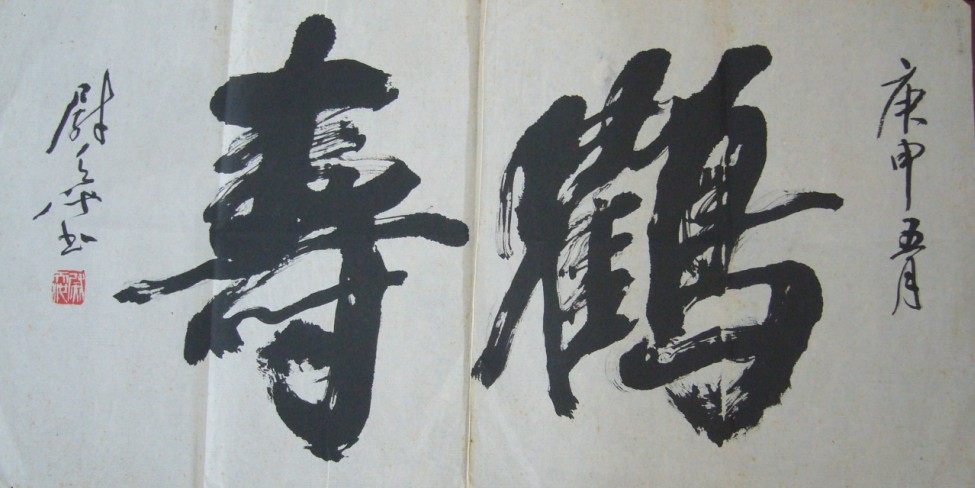 庚申五月
鶴壽
尉天池书